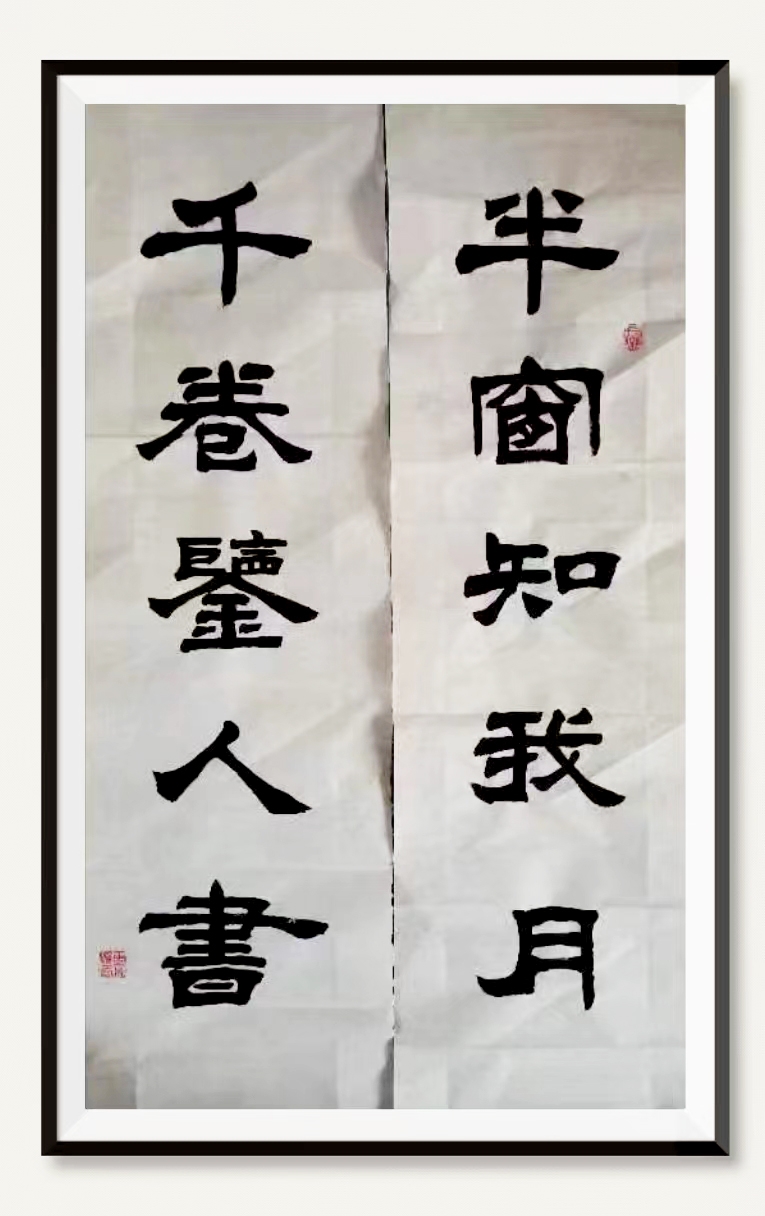 半窗知我月
千卷鑒人書